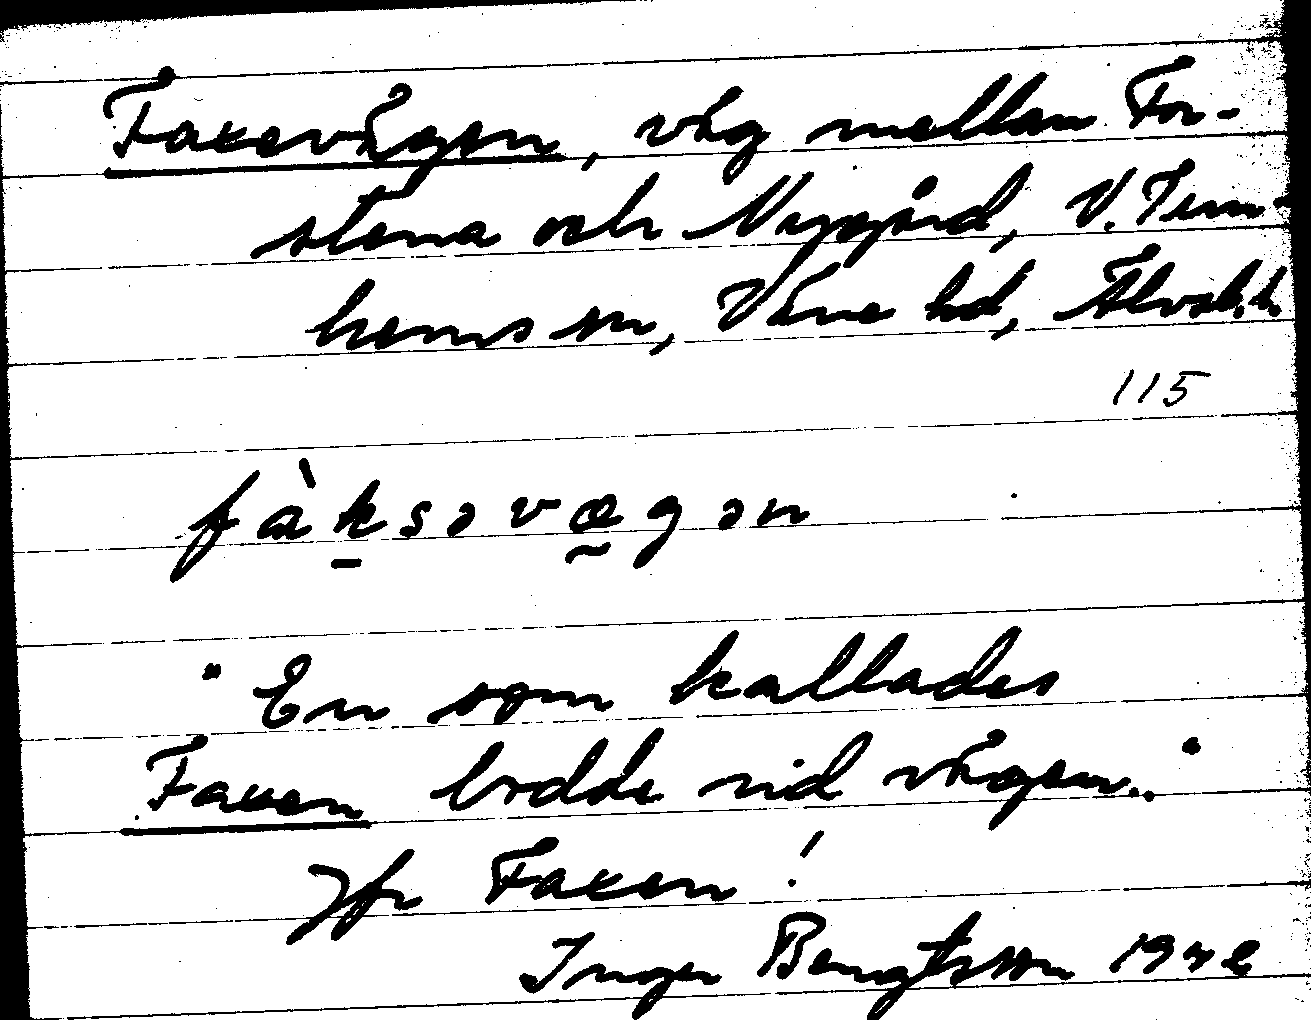 Faxevägen, väg mellan For-
stena och Nygård, V. Tun-
hems sn, Väne hd, Älvsb.l.
115
fàksəvægən
"En som kallades
Faxen bodde vid vägen.."
Jfr Faxen!
Inger Bengtsson 1942